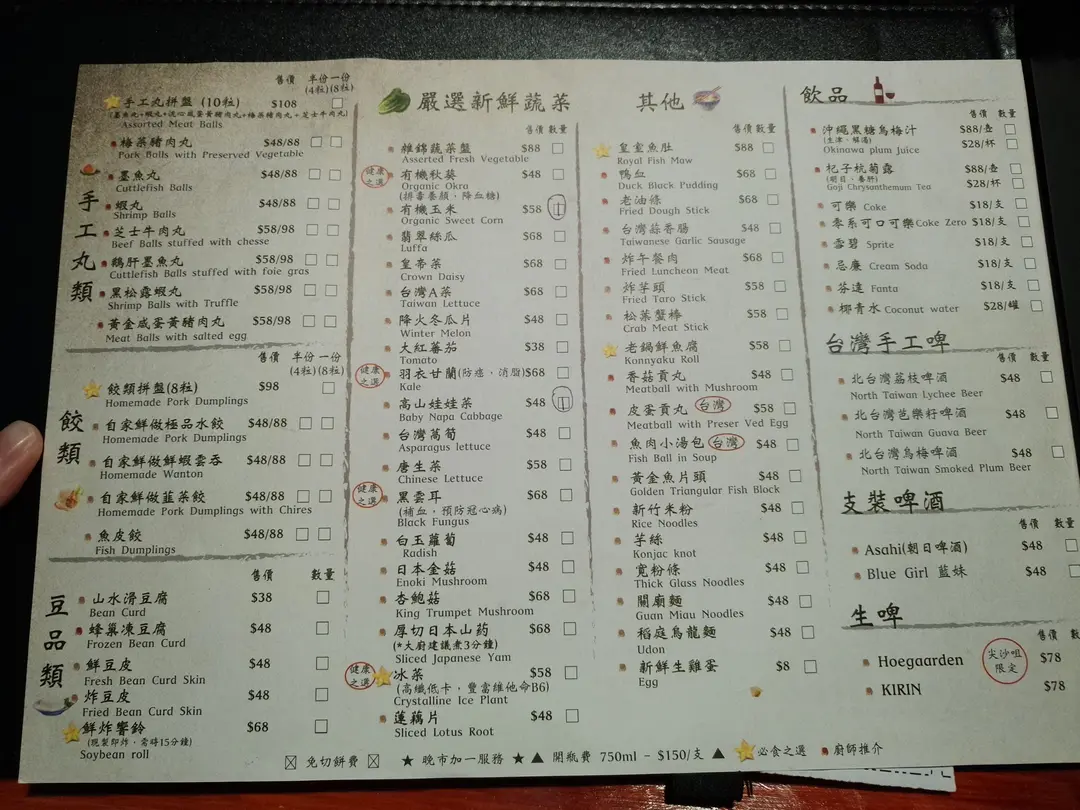 售價 半份一份
(4粒)(8粒)
手工丸拼盤 (10粒) $108
Assorted Meat Balls
梅菜豬肉丸 $48/88
Pork Balls with Preserved Vegetable
墨魚丸 $48/88
Cuttlefish Balls
手工丸類
蝦丸 $48/88
Shrimp Balls
芝士牛肉丸 $58/98
Beef Balls stuffed with chesse
鵝肝墨魚丸 $58/98
Cuttlefish Balls stuffed with foie gras
黑松露蝦丸 $58/98
Shrimp Balls with Truffle
黃金咸蛋黃豬肉丸 $58/98
Meat Balls with salted egg
售價 半份一份
(4粒)(8粒)
餃類拼盤(8粒) $98
Homemade Pork Dumplings
餃類
自家鮮做極品水餃 $48/88
Homemade Pork Dumplings
自家鮮做鮮蝦雲吞 $48/88
Homemade Wanton
自家鮮做韮菜餃 $48/88
Homemade Pork Dumplings with Chires
魚皮餃 $48/88
Fish Dumplings
售價 數量
豆品類
山水滑豆腐 $38
Bean Curd
蜂巢凍豆腐 $48
Frozen Bean Curd
鮮豆皮 $48
Fresh Bean Curd Skin
炸豆皮 $48
Fried Bean Curd Skin
鮮炸響鈴 $68
(現製即炸，需時15分鐘)
Soybean roll
嚴選新鮮蔬菜
售價 數量
雜錦蔬菜盤 $88
Asserted Fresh Vegetable
健康之選
有機秋葵 $48
Organic Okra
(排毒養顏，降血糖)
有機玉米 $58
Organic Sweet Corn
翡翠絲瓜 $68
Luffa
皇帝菜 $68
Crown Daisy
台灣A菜 $68
Taiwan Lettuce
降火冬瓜片 $48
Winter Melon
大紅蕃茄 $38
Tomato
健康之選
羽衣甘蘭(防癌，消脂)$68
Kale
高山娃娃菜 $48
Baby Napa Cabbage
台灣萵筍 $48
Asparagus lettuce
唐生菜 $58
Chinese Lettuce
健康之選
黑雲耳 $68
(補血，預防冠心病)
Black Fungus
白玉蘿蔔 $48
Radish
日本金菇 $48
Enoki Mushroom
杏鮑菇 $68
King Trumpet Mushroom
厚切日本山葯 $68
(*大廚建議煮3分鐘)
Sliced Japanese Yam
健康之選
冰菜 $58
(高纖低卡，豐富維他命B6)
Crystalline Ice Plant
蓮藕片 $48
Sliced Lotus Root
其他
售價 數量
皇室魚肚 $88
Royal Fish Maw
鴨血 $68
Duck Black Pudding
老油條 $68
Fried Dough Stick
台灣蒜香腸 $48
Taiwanese Garlic Sausage
炸午餐肉 $68
Fried Luncheon Meat
炸芋頭 $58
Fried Taro Stick
松葉蟹棒 $58
Crab Meat Stick
老鍋鮮魚腐 $58
Konnyaku Roll
香菇貢丸 $48
Meatball with Mushroom
皮蛋貢丸 台灣 $58
Meatball with Preser Ved Egg
魚肉小湯包 台灣 $48
Fish Ball in Soup
黃金魚片頭 $48
Golden Triangular Fish Block
新竹米粉 $48
Rice Noodles
芋絲 $48
Konjac knot
寬粉條 $48
Thick Glass Noodles
關廟麵 $48
Guan Miau Noodles
稻庭烏龍麵 $48
Udon
新鮮生雞蛋 $8
Egg
飲品
售價 數量
沖繩黑糖烏梅汁 $88/壺
(生津、解渴) $28/杯
Okinawa plum Juice
杞子杭菊露 $88/壺
(明目、養肝)
Goji Chrysanthemum Tea $28/杯
可樂 Coke $18/支
零系可口可樂Coke Zero $18/支
雪碧 Sprite $18/支
忌廉 Cream Soda $18/支
芬達 Fanta $18/支
椰青水 Coconut water $28/罐
台灣手工啤
售價 數量
北台灣荔枝啤酒 $48
North Taiwan Lychee Beer
北台灣芭樂籽啤酒 $48
North Taiwan Guava Beer
北台灣烏梅啤酒 $48
North Taiwan Smoked Plum Beer
支裝啤酒
售價 數量
Asahi(朝日啤酒) $48
Blue Girl 藍妹 $48
生啤
售價
Hoegaarden $78
尖沙咀限定
KIRIN $78
免切餅費 ★ 晚市加一服務 ★ ▲ 開瓶費 750ml - $150/支 ▲ 必食之選 廚師推介